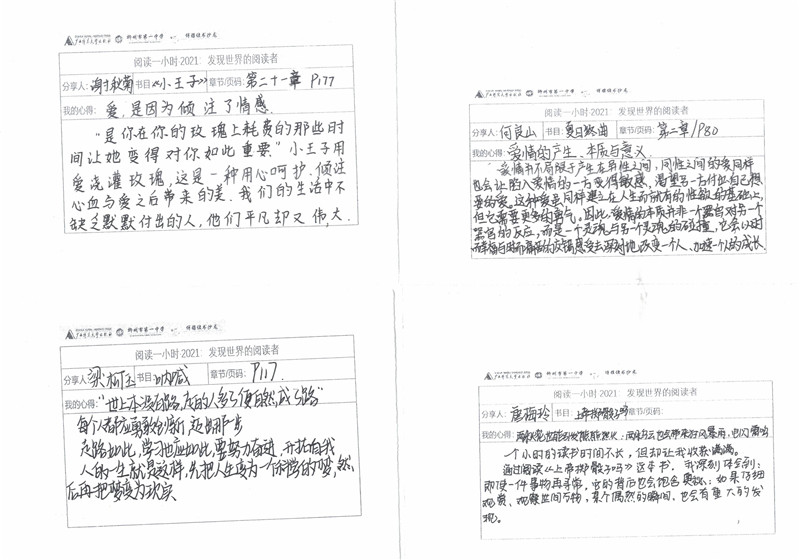 广西师范大学出版社 柳州市第一中学 博雅读书沙龙
阅读一小时2021：发现世界的阅读者
分享人：谢秋菊 书目《小王子》 章节/页码：第二十一章 P177
我的心得：爱，是因为倾注了情感.
“是你在你的玫瑰上耗费的那些时
间让她变得对你如此重要.”小王子用
爱浇灌玫瑰，这是一种用心呵护.倾注
心血与爱之后带来的美.我们的生活中不
缺乏默默付出的人，他们平凡却又伟大.
阅读一小时2021：发现世界的阅读者
分享人：何良山 书目：夏日终曲 章节/页码：第二章/P80
我的心得：爱情的产生、本质与意义.
爱情并不局限于产生在异性之间，同性之间的爱同样
也会让陷入爱情的一方变得敏感，渴望另一方付出自己想
要的爱.这种爱是同样建立在人生而就有的性欲的基础上，
但它需要更多的勇气.因此，爱情的本质并非一个器官对另一个
器官的反应，而是一个灵魂与另一个灵魂的碰撞，它会以时
去深刻地改变一个人、加速个人的成长
阅读一小时2021：发现世界的阅读者
分享人 梁 书目：呐喊 章节/页码：P117.
我的心得：“世上本没有路，走的人多了便自然成了路”
每个人都应勇敢创新，走出那一步
走路如此，学习也应如此，要努力奋进，开拓自我
人的一生就是这样，先把人生变为一个梦，然
后再把梦变为现实
阅读一小时2021：发现世界的阅读者
分享人：唐梅玲 书目：上帝掷骰子吗 章节/页码：
我的心得：
一个小时的读书时间不长，但却让我收获满满.
通过阅读《上帝掷骰子吗》这本书，我深刻体会到：
即使一件事物再寻常，它的背后也会饱含奥秘；如果仔细
观察、观察世间万物，某个偶然的瞬间，也会有重大的发
现.